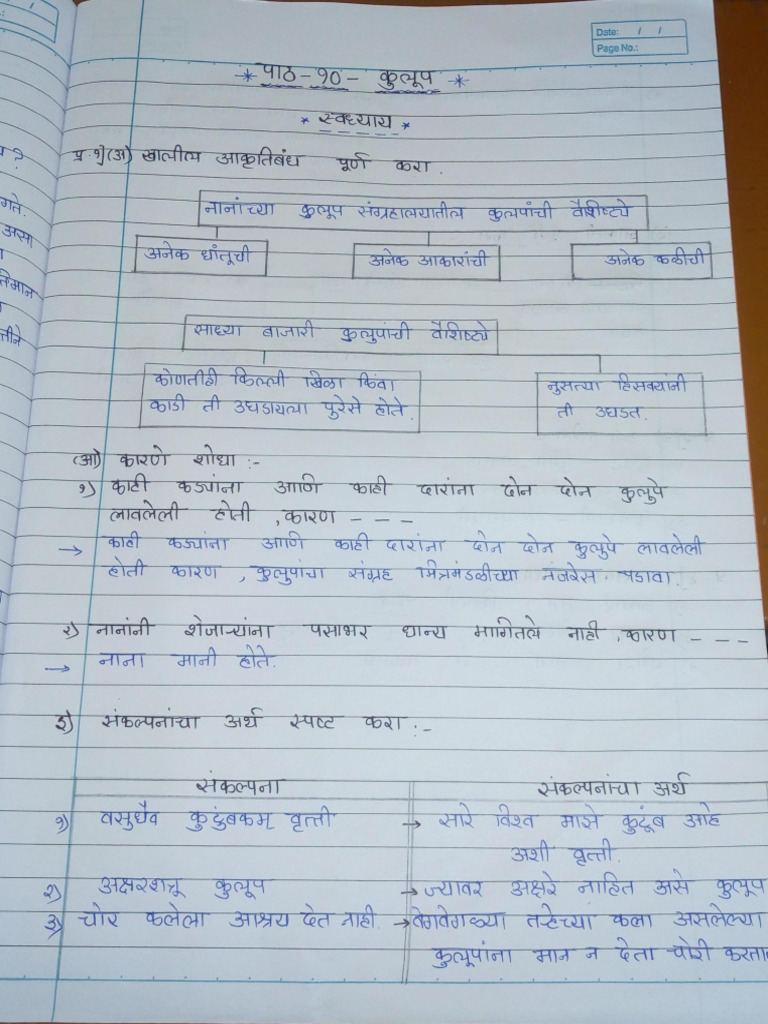 Date: / /
Page No.:
* पाठ - १० - कुलूप *
* स्वध्याय *
प्र.१)(अ) खालील आकृतिबंध पूर्ण करा.
नानांच्या कुलूप संग्रहालयातील कुलपांची वैशिष्ट्ये
अनेक धांतूची अनेक आकारांची अनेक कळीची
साध्या बाजारी कुलुपांची वैशिष्ट्ये
कोणतीही किल्ली खिळा किंवा
काडी ती उघडायला पुरेसे होते.
नुसत्या हिसक्यांनी
ती उघडत.
(आ) कारणे शोधा :-
१) काही कड्यांना आणि काही दारांना दोन दोन कुलुपे
लावलेली होती , कारण - - -
→ काही कड्यांना आणि काही दारांना दोन दोन कुलुपे लावलेली
होती कारण , कुलुपांचा संग्रह मित्रमंडळीच्या नजरेस पडावा.
२) नानांनी शेजाऱ्यांना पसाभर धान्य मागितले नाही , कारण - - -
→ नाना मानी होते.
इ) संकल्पनांचा अर्थ स्पष्ट करा :-
संकल्पना संकल्पनांचा अर्थ
१) वसुधैव कुटुंबकम् वृत्ती → सारे विश्व माझे कुटूंब आहे
अशी वृत्ती.
२) अक्षरशत्रू कुलूप → ज्यावर अक्षरे नाहित असे कुलूप
३) चोर कलेला आश्रय देत नाही. → वेगवेगळ्या तऱ्हेच्या कला असलेल्या
कुलूपांना मान न देता चोरी करता